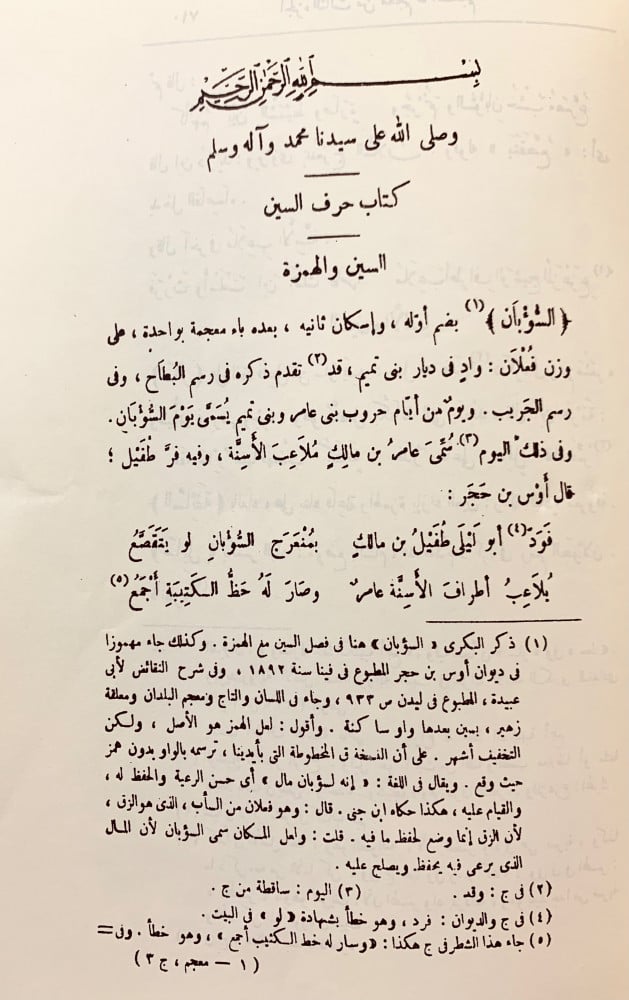 بسم الله الرحمن الرحيم
وصلى الله على سيدنا محمد وآله وسلم
كتاب حرف السين
السين والهمزة
﴿السُّؤْبَان﴾(١) بضم أوّله ، وإسكان ثانيه ، بعده باء معجمة بواحدة ، على
وزن فُعْلَان : وادٍ فى ديار بنى تميم ، قد(٢) تقدم ذكره فى رسم البُطَاح ، وفى
رسم الجَريب . ويومٌ من أيّام حروب بنى عامر وبنى تميم يُسَمَّى يَوْمَ السُّؤْبَانِ .
وفى ذلك اليوم(٣) سُمِّىَ عامرُ بن مالكٍ مُلَاعِبَ الأَسِنَّة ، وفيه فرَّ طُفَيْل ؛
قال أَوْس بن حَجَر :
فَوَدَّ(٤) أبو لَيْلَى طُفَيْلُ بن مالكٍ بمُنْعَرَجِ السُّؤْبانِ لو يَتَقَصَّعُ
يُلَاعِبُ أطرافَ الأَسِنَّةِ عامرٌ وصَارَ لَهُ حَظُّ الكَتِيبَةِ أَجْمَعُ(٥)
(١) ذكر البكرى «السؤبان» هنا فى فصل السين مع الهمزة . وكذلك جاء مهموزا
فى ديوان أوس بن حجر المطبوع فى فينا سنة ١٨٩٢ ، وفى شرح النقائض لأبى
عبيدة ، المطبوع فى ليدن ص ٩٣٣ ، وجاء فى اللسان والتاج ومعجم البلدان ومعلقة
زهير ، بسين بعدها واو ساكنة . وأقول : لعل الهمز هو الأصل ، ولكن
التخفيف أشهر . على أن النسخة ق المخطوطة التى بأيدينا ، ترسمه بالواو بدون همز
حيث وقع . ويقال فى اللغة : «إنه لسؤبان مال» أى حسن الرعية والحفظ له ،
والقيام عليه ، هكذا حكاه ابن جنى . قال : وهو فعلان من السأب ، الذى هو الزق ،
لأن الزق إنما وضع لحفظ ما فيه . قلت : ولعل المكان سمى السؤبان لأن المال
الذى يرعى فيه يحفظ ويصلح عليه .
(٢) فى ج : وقد . (٣) اليوم : ساقطة من ج .
(٤) فى ج والديوان : فرد ، وهو خطأ بشهادة «لو» فى البيت .
(٥) جاء هذا الشطر فى ج هكذا : «وسار له خط الكثيب أجمع» ، وهو خطأ . وفى=
(١ — معجم ، ج ٣)